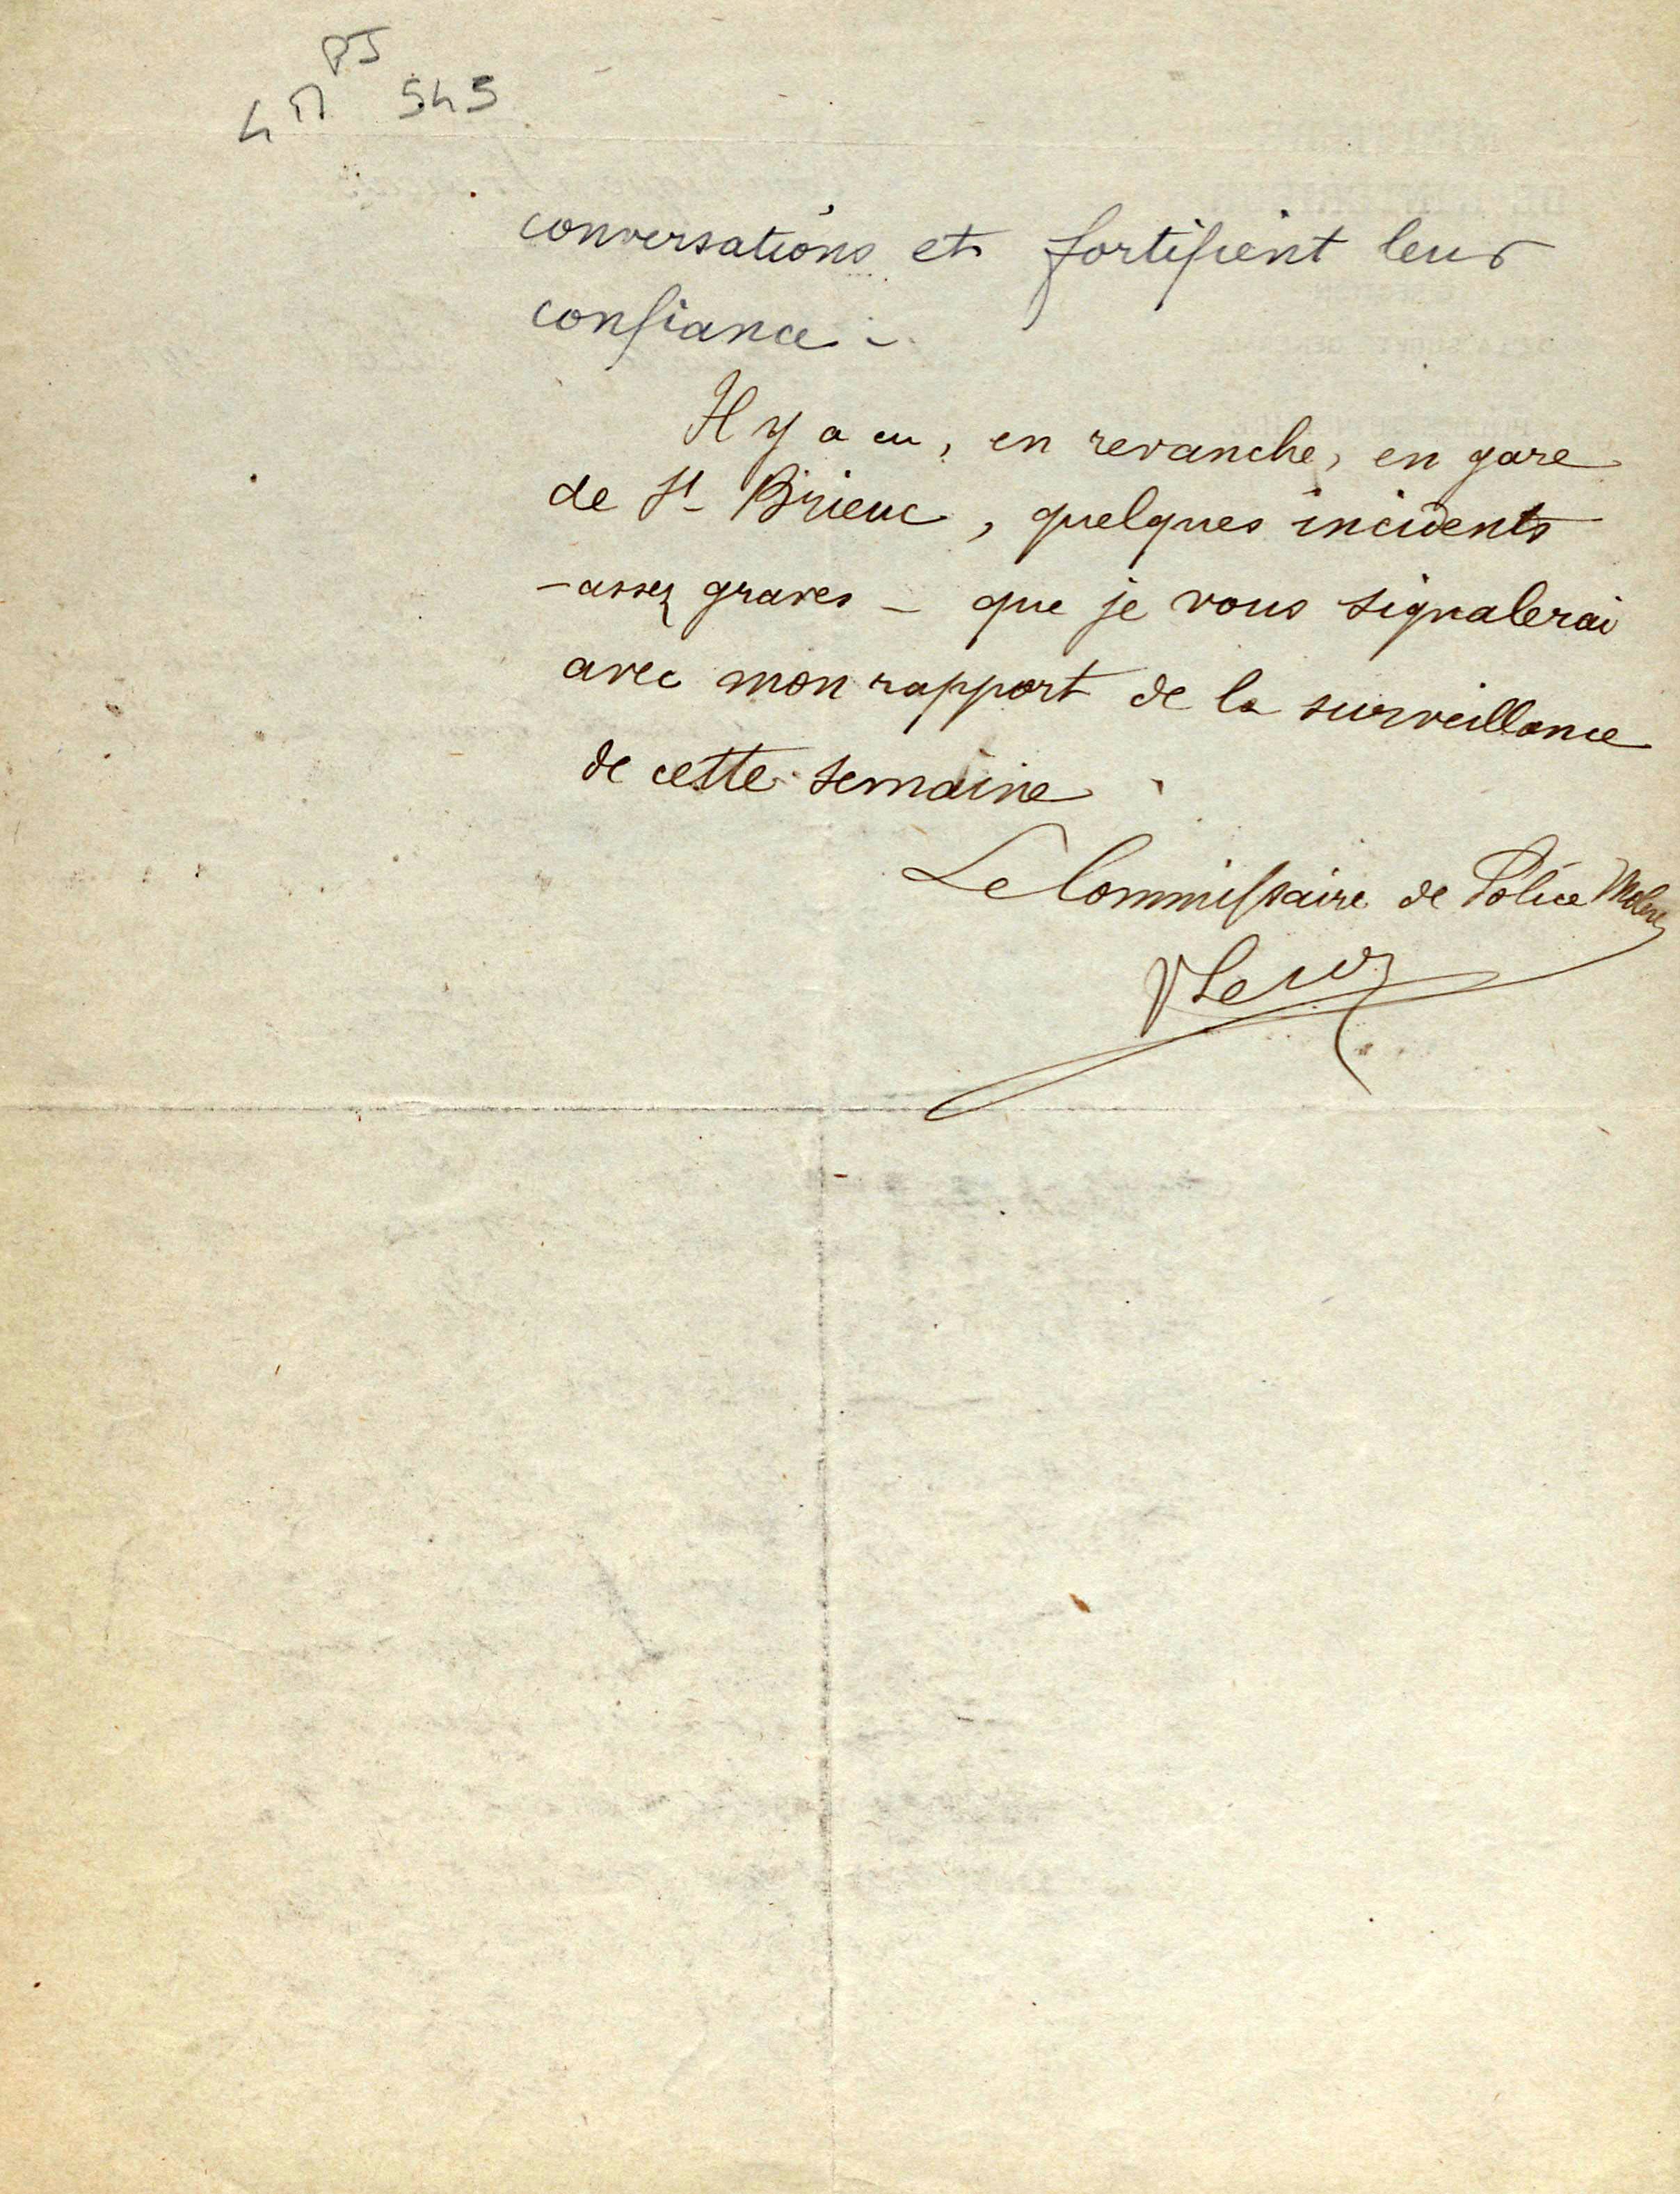 PJ
4 M 545
conversations et fortifient leur
confiance -
Il y a eu, en revanche, en gare
de St Brieuc, quelques incidents
- assez graves - que je vous signalerai
avec mon rapport de la surveillance
de cette semaine.
Le Commissaire de Police